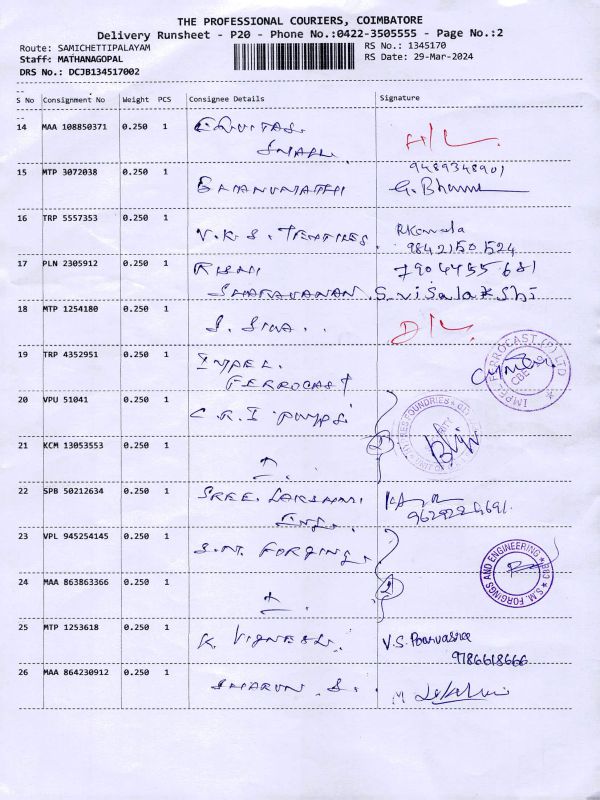 THE PROFESSIONAL COURIERS, COIMBATORE
Delivery Runsheet - P20 - Phone No.:0422-3505555 - Page No.:2
Route: SAMICHETTIPALAYAM
RS No.: 1345170
Staff: MATHANAGOPAL
RS Date: 29-Mar-2024
DRS No.: DCJB134517002
S No Consignment No Weight PCS Consignee Details Signature
14 MAA 108850371 0.250 1 EQUITAS
SMALL
15 MTP 3072038 0.250 1 BHANUMATHI 9489348901
G. Bhanu
16 TRP 5557353 0.250 1 V.K.S. TEXTILES. RKamala
98421501524
17 PLN 2305912 0.250 1 RISHI 7904455681
SHARAVANAN S. visalakshi
18 MTP 1254180 0.250 1 S. SIVA
D/L
19 TRP 4352951 0.250 1 IMPEL
FERROCAST
IMPEL FERROCAST (P) LTD
CBE
20 VPU 51041 0.250 1 C.R.I PUMPS
21 KCM 13053553 0.250 1
2
22 SPB 50212634 0.250 1 SREE. LAKSHMI
ENGG.
23 VPL 945254145 0.250 1 S.M. FORGING.
S.M. FORGINGS AND ENGINEERING
24 MAA 863863366 0.250 1
2
25 MTP 1253618 0.250 1 K. VIGNESH. V.S. Poorvasree
9786618666
26 MAA 864230912 0.250 1 SHARUN. S.